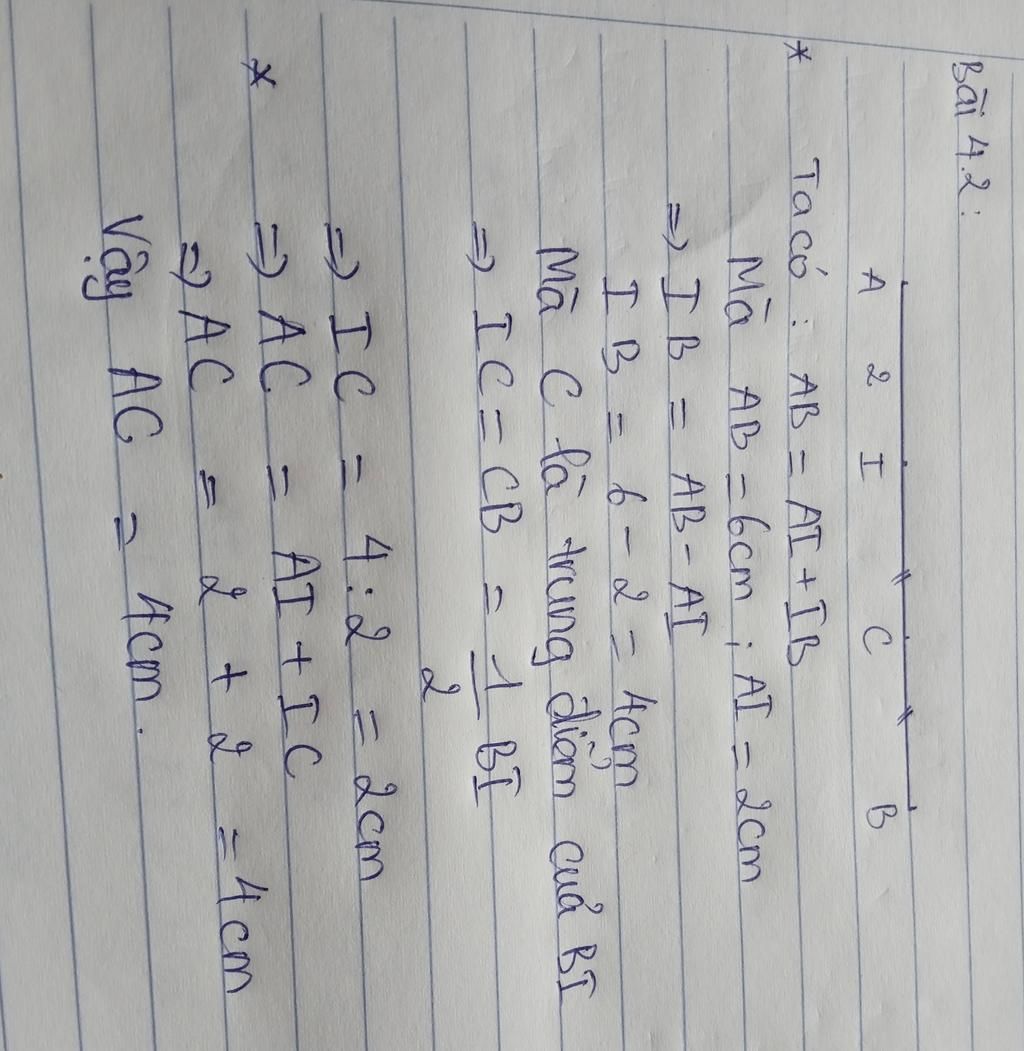 Bài 4.2:
A 2 I C B
* Ta có : AB = AI + IB
Mà AB = 6cm ; AI = 2cm
=> IB = AB - AI
IB = 6 - 2 = 4cm
Mà C là trung điểm của BI
=> IC = CB = 1/2 BI
=> IC = 4 : 2 = 2cm
* => AC = AI + IC
=> AC = 2 + 2 = 4cm
Vậy AC = 4cm.